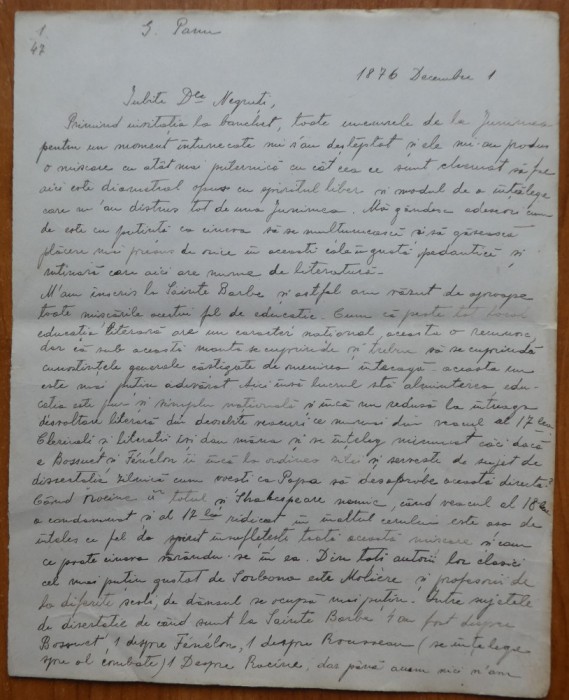 1
47
G. Panu
1876 Decembre 1
Iubite Dle Negruti,
Primind invitatia la banchet, toate suvenirele de la Junimea
pentru un moment intunecate mi s'au desteptat si ele mi-au produs
o miscare cu atât mai puternică cu cât cea ce sunt chemat să fac
aici este diametral opus cu spiritul liber si modul de a intălege
care m'au distrus tot de una Junimea. Mă gândesc adeseori cum
de este cu putintă ca cineva să se multumească si să găsească
plăcere mai presus de orice in aceasta cale ingustă pedantică si
rutinară care aici are nume de literatură.
M'am inscris la Sainte Barbe si astfel am văzut de aproape
toate miscările acestui fel de educatie. Cum că peste tot locul
educatia literară are un caracter national aceasta o remarc,
dar că sub această manta se cuprinde si trebui să se cuprindă
cunostintele generale câstigate de omenirea intreagă aceasta nu
este mai putin adevărat. Aici insă lucrul stă alminterea edu-
catia este pur si simplu natională si incă nu redusă la intreaga
dezvoltare literară din deosebite veacuri ce numai din veacul al 17 lea
Clericali si literatii isi dau mâna si se inteleg minunat căci dacă
e Bossuet si Fénélon ii incă la ordinea zilei si serveste de sujet de
dissertatie zilnică cum voesti ca Papa să desaprobe această directie?
Când Racine ii totul si Shakespeare nemic, când veacul al 18 lea
e condamnat si al 17 lea ridicat in inaltul cerului este usor de
inteles ce fel de spirit insufleteste toată această miscare si cam
ce poate cineva vârându-se in ea. Din toti autorii lor clasici
cel mai putin gustat de Sorbona este Molière si profesorii de
la diferite scoli, de dânsul se ocupă mai putin. Intre sujetele
de disertatie de când sunt la Sainte Barbe, 1 au fost despre
Bossuet, 1 despre Fénélon, 1 despre Rousseau (se intălege
spre al combate) 1 Despre Racine, dar până acum nici n'am